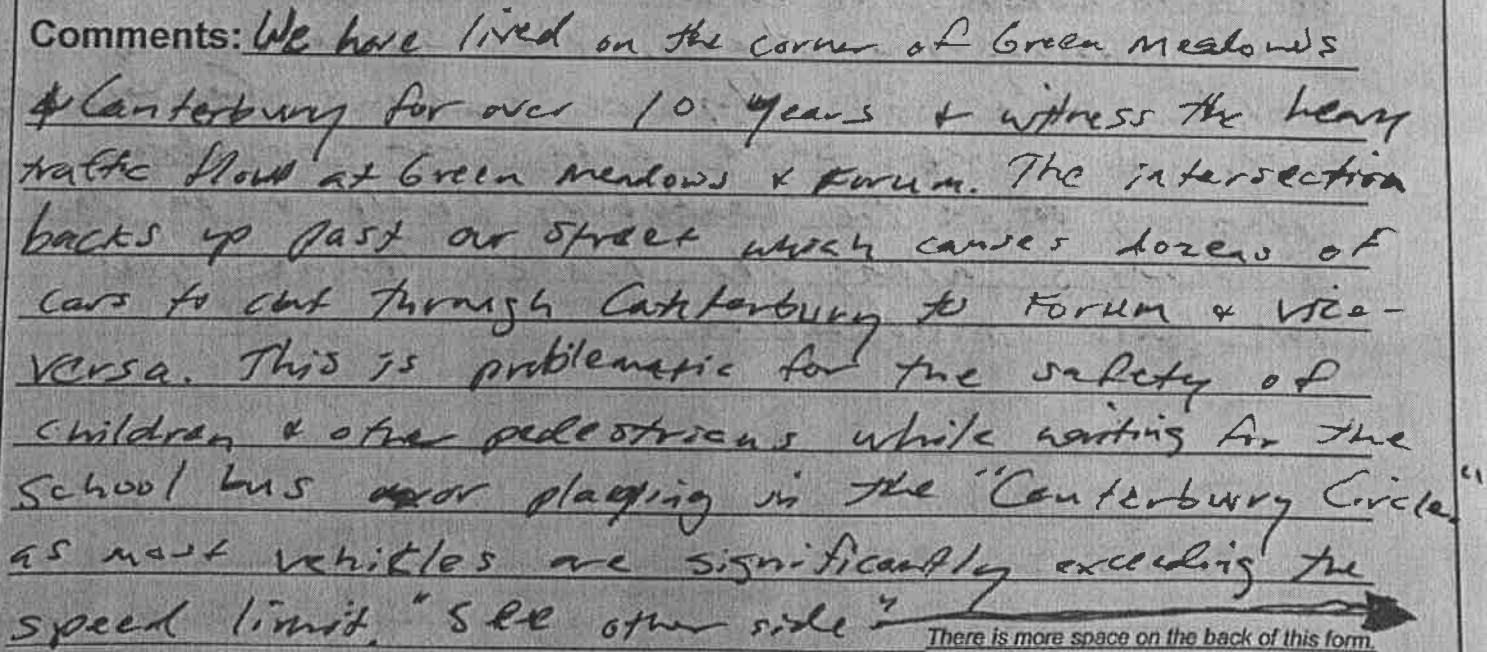 Comments: We have lived on the corner of Green Meadows
& Canterbury for over 10 years & witness the heavy
traffic flow at Green Meadows & Forum. The intersection
backs up past our street which causes dozens of
cars to cut through Canterbury to Forum & vice-
versa. This is problematic for the safety of
children & other pedestrians while waiting for the
school bus or playing in the "Canterbury Circle"
as most vehicles are significantly exceeding the
speed limit. "See other side"
There is more space on the back of this form.